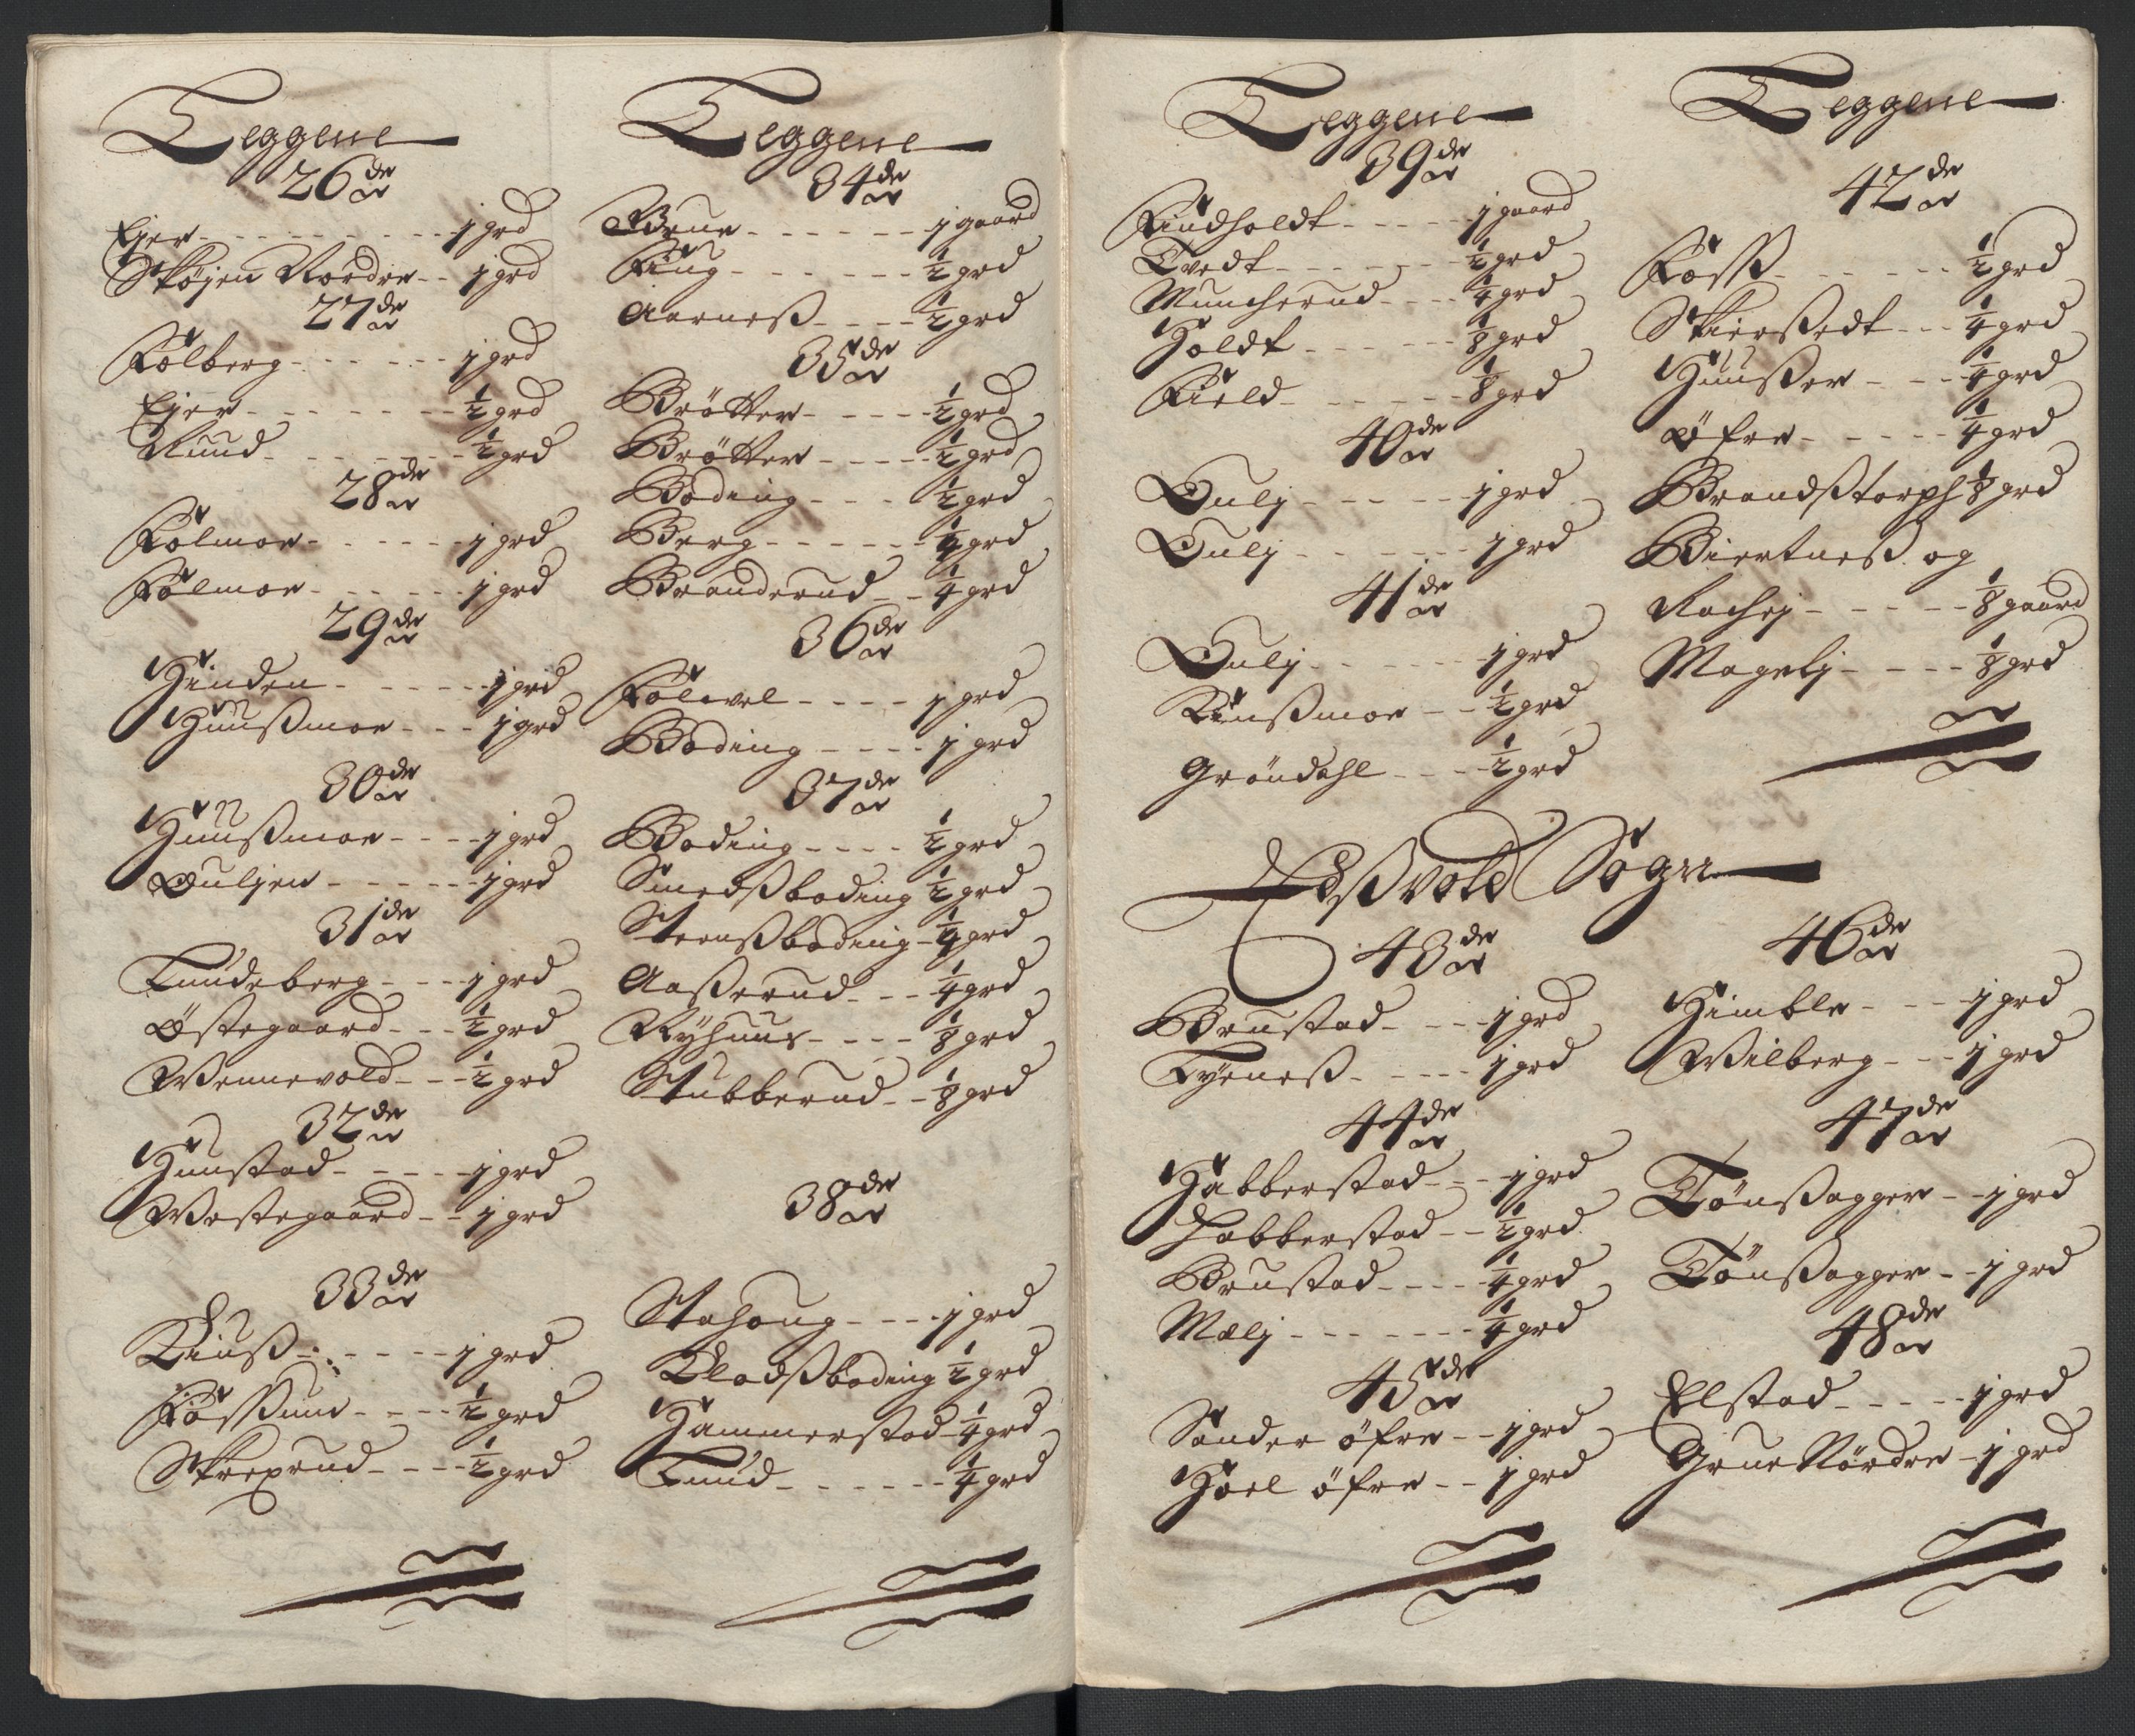 Leggene
26de
Ejer - - - 1 grd
Skøjen Nordre - - 1 grd
27de
Følberg - - - 1 grd
Ejer - - - ½ grd
Ruud - - - ½ grd
28de
Følmoe - - - 1 grd
Følmoe - - - 1 grd
29de
Hinden - - - 1 grd
Huuszmoe - - - 1 grd
30de
Huuszmoe - - - 1 grd
Duljen - - - 1 grd
31de
Lundeberg - - - 1 grd
Østegaard - - - ½ grd
Wennevold - - - ½ grd
32de
Huustad - - - 1 grd
Westegaard - - 1 grd
33de
Kiusz - - - 1 grd
Føssum - - - ½ grd
Skrexrud - - - ½ grd
Leggene
34de
Brue - - - 1 gaard
Fiug - - - ½ grd
Aarnesz - - - ½ grd
35de
Brøtter - - - ½ grd
Brøtter - - - ½ grd
Boding - - - ½ grd
Berg - - - ¼ grd
Branderud - - ¼ grd
36de
Føl - - - 1 grd
Boding - - - 1 grd
37de
Boding - - - ½ grd
Smedszboding ½ grd
Steenszboding - ¼ grd
Aaszerud - - - ¼ grd
Ryhuus - - - ⅛ grd
Stubberud - - ⅛ grd
38de
Stahoug - - - 1 grd
Kladszboding ½ grd
Hammerstad - ¼ grd
Lund - - - ¼ grd
Leggene
39de
Findholdt - - - 1 gaard
Tvedt - - - ½ grd
Muncherud - - - ¼ grd
Holdt - - - ⅛ grd
Field - - - ⅛ grd
40de
Dulj - - - 1 grd
Dulj - - - 1 grd
41de
Dulj - - - 1 grd
Kinszmoe - - ½ grd
Grøndahl - - - ½ grd
Leggene
42de
Føss - - - ½ grd
Skierszedt - - - ¼ grd
Huuszer - - - ¼ grd
Øfre - - - ¼ grd
Brandsztorph ⅛ grd
Biertnesz og
Rachej - - - ⅛ gaard
Magelj - - - ⅛ grd
Edszvold Sogn
43de
Brustad - - - 1 grd
Fyenesz - - - 1 grd
44de
Habberstad - - - 1 grd
Habberstad - - ½ grd
Brustad - - - ¼ grd
Mælj - - - ¼ grd
45de
Sander øfre - - 1 grd
Hoel øfre - - 1 grd
46de
Himble - - - 1 grd
Wilberg - - - 1 grd
47de
Tønszagger - - 1 grd
Tønszagger - - 1 grd
48de
Elstad - - - 1 grd
Grue Nørdre - 1 grd